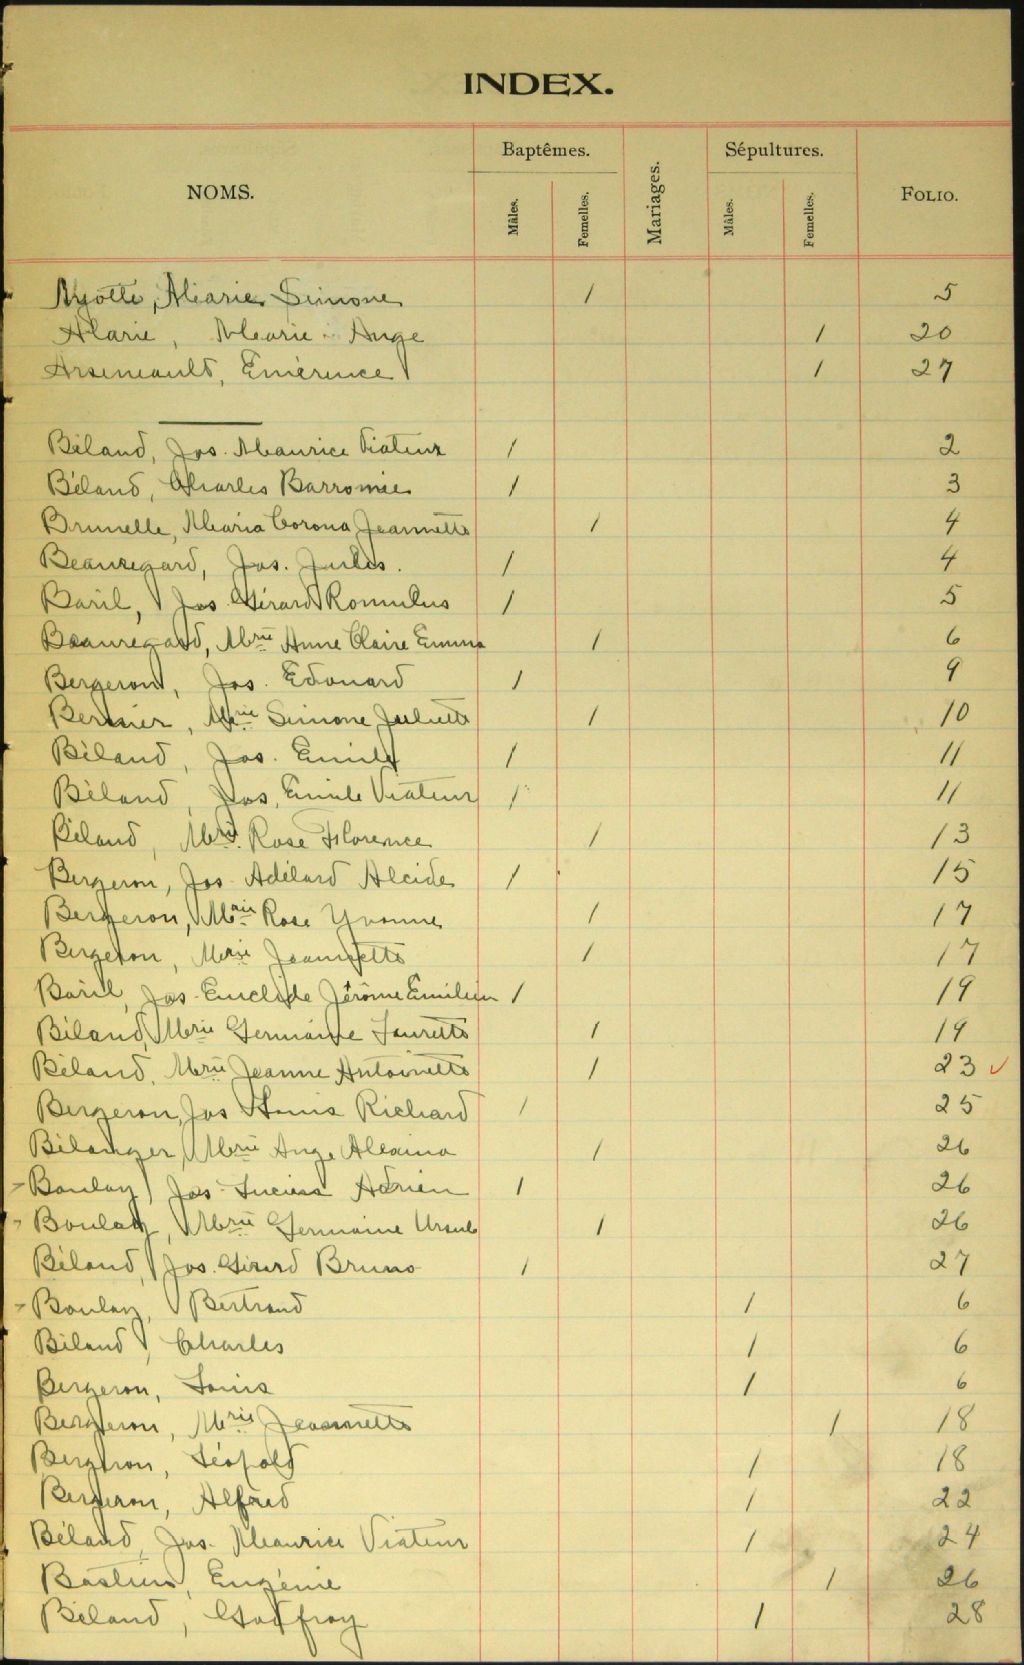 INDEX.
NOMS. Baptêmes. Mâles. Femelles. Mariages. Sépultures. Mâles. Femelles. FOLIO.
Ayotte, Marie Simone 1 5
Alarie, Marie Ange 1 20
Arseneault, Emérence 1 27
Béland, Jos. Maurice Viateur 1 2
Béland, Charles Barromie 1 3
Brunelle, Maria Corona Jeannette 1 4
Beauregard, Jos. Jules. 1 4
Baril, Jos Gérard Romulus 1 5
Beauregard, Mrie Anne Claire Emma 1 6
Bergeron, Jos. Edouard 1 9
Bernier, Mrie Simone Juliette 1 10
Béland, Jos. Emile 1 11
Béland, Jos, Emile Viateur 1 11
Béland, Mrie Rose Florence 1 13
Bergeron, Jos. Adélard Alcide 1 15
Bergeron, Mrie Rose Yvonne 1 17
Bergeron, Mrie Jeannette 1 17
Baril, Jos. Euclide Jérôme Emilien 1 19
Béland, Mrie Germaine Laurette 1 19
Béland, Mrie Jeanne Antoinette 1 23 ✓
Bergeron, Jos Louis Richard 1 25
Bélanger, Mrie Ange Aleaina 1 26
Boulay, Jos Lucien Adrien 1 26
Boulay, Mrie Germaine Ursule 1 26
Béland, Jos. Girard Bruno 1 27
Boulay, Bertrand 1 6
Béland, Charles 1 6
Bergeron, Louis 1 6
Bergeron, Mrie Jeannette 1 18
Bergeron, Léopold 1 18
Bergeron, Alfred 1 22
Béland, Jos. Maurice Viateur 1 24
Bastien, Eugénie 1 26
Béland, Godfroy 1 28